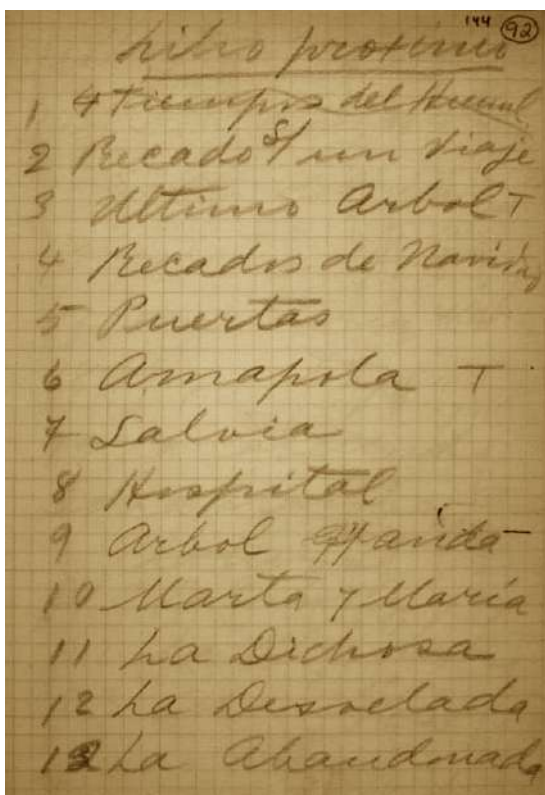 144 92
Libro próximo
1 4 tiempos del Huemul
2 Recado s/ un viaje
3 Ultimo Arbol T
4 Recados de Navidad
5 Puertas
6 Amapola T
7 Salvia
8 Hospital
9 Arbol
10 Marta y María
11 La Dichosa
12 La Desvelada
13 La Abandonada